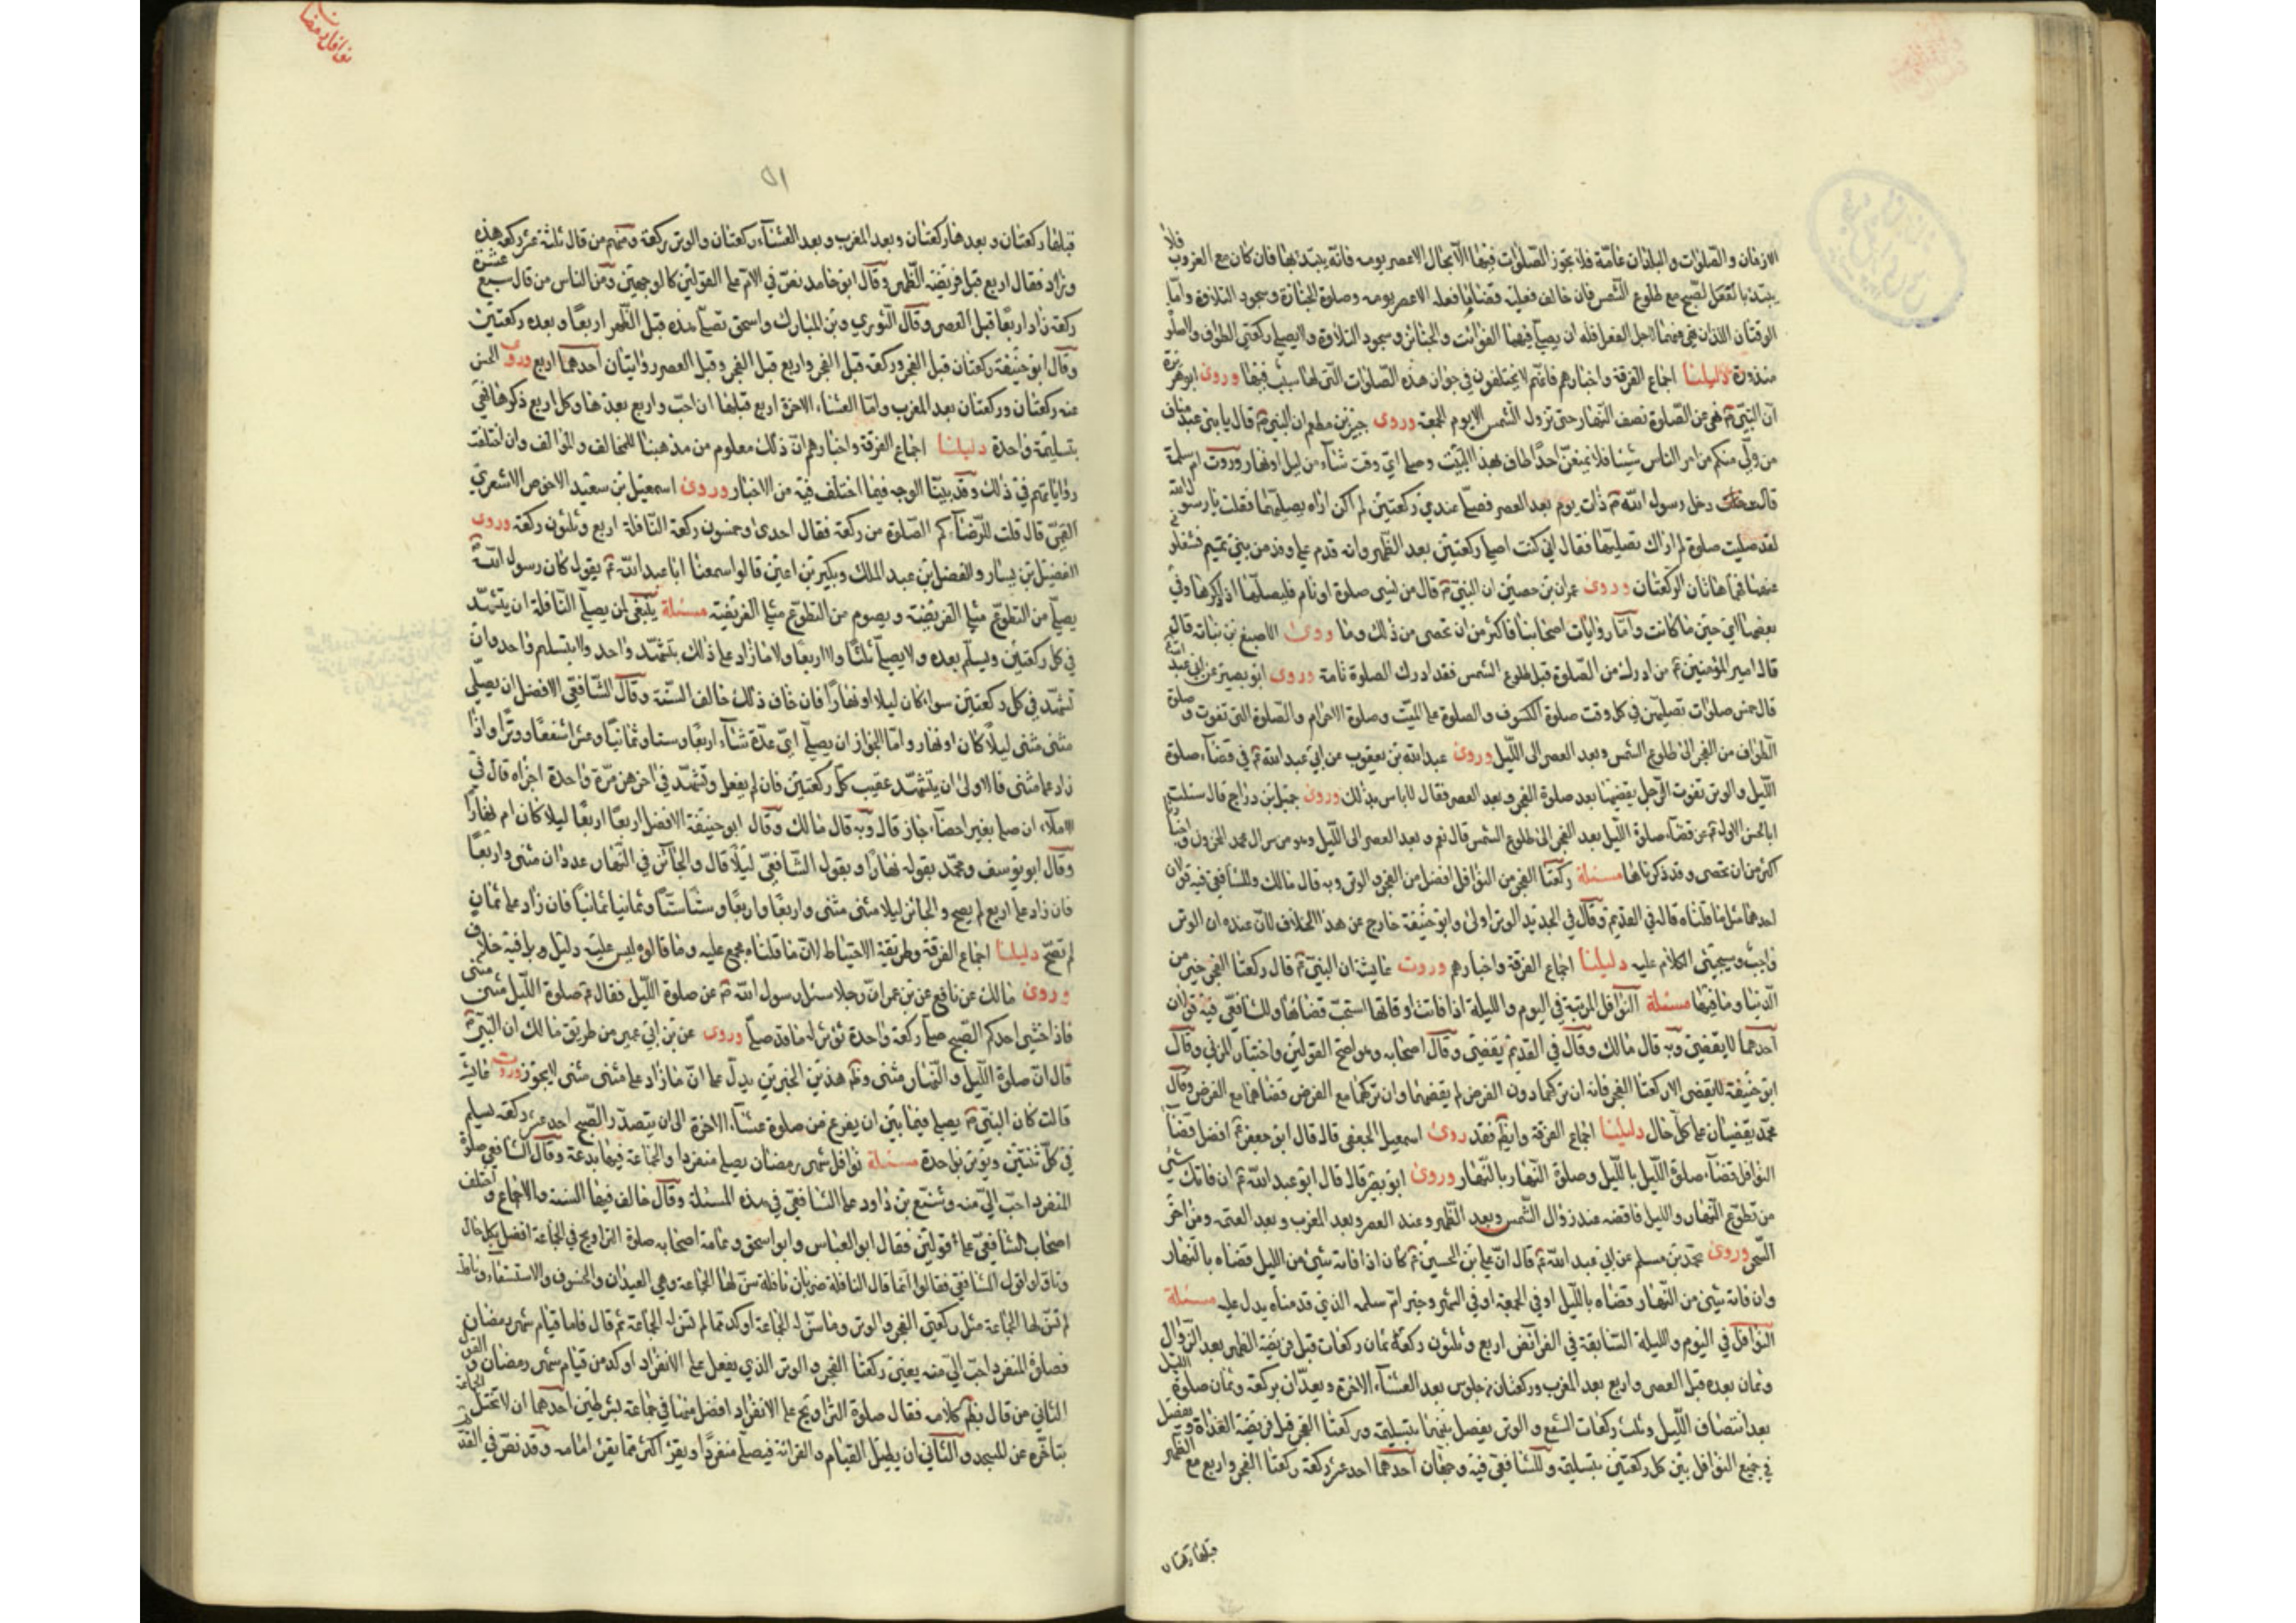 الازمان والصلوات والبلدان عامّة فلا تجوز الصلوات فيها الا بحال الا عصر يومه فانّه يبتدئها فان كان مع الغروب فلا
يبتدئ بالنفل لصبح مع طلوع الشمس فان خالف فعليه قضاؤها فعله الا عصر يومه وصلوة الجنازة وسجود التلاوة وامّا
الوقتان اللذان نهى فيهما لاجل الفعل فله ان يصلّي فيهما الفوائت والجنائز وسجود التلاوة ولا يصلي ركعتي الطواف ولا صلوة
منذورة دليلنا اجماع الفرقة واخبارهم فانهم لا يختلفون في جواز هذه الصلوات التي لها سبب فيها وروى ابو هريرة
انّ النبيّ نهى عن الصلوة نصف النهار حتى تزول الشمس الا يوم الجمعة وروى جبير بن مطعم ان النبي قال يا بني عبد مناف
من ولّي منكم من امر الناس شيئا فلا يمنعنّ احدًا طاف بهذا البيت وصلى ايّ وقت شاء من ليل او نهار وروت ام سلمة
قالت دخل رسول الله ذات يوم بعد العصر فصلّى عندي ركعتين لم اكن اراه يصلّيهما فقلت يا رسول الله
لقد صليت صلوة لم اراك تصليها فقال اني كنت اصلي ركعتين بعد الظهر وانه قدم علي وفد من بني تميم فشغلوني
عنهما فهما هاتان الركعتان وروى عمران بن حصين ان النبي قال من نسي صلوة او نام فليصلّها اذا ذكرها وفي
بعضها ايّ حين ما كانت وامّا روايات اصحابنا فاكثر من ان تحصى من ذلك وما روى الاصبغ بن نباته قال
قال امير المؤمنين من ادرك من الصلوة قبل طلوع الشمس فقد ادرك الصلوة تامة وروى ابو بصير عن ابي عبد الله
قال خمس صلوات تصليهن في كل وقت صلوة الكسوف والصلوة على الميّت وصلوة الاحرام والصلوة التي تفوت وصلوة
الطواف من الفجر الى طلوع الشمس وبعد العصر الى الليل وروى عبد الله بن يعقوب عن ابي عبد الله في قضاء صلوة
الليل والوتر تفوت الرجل يقضيها بعد صلوة الفجر وبعد العصر فقال لا باس بذلك وروى جميل بن دراج قال سئلت
ابا الحسن الاول عن قضاء صلوة الليل بعد الفجر الى طلوع الشمس قال نعم وبعد العصر الى الليل وهو من سر ال محمد المخزون
اكثر من ان تحصى وقد ذكرناها مسئلة ركعتا الفجر من النوافل افضل من الفجر والوتر وبه قال مالك وللشافعي فيه قولان
احدهما مثل ما قلناه قاله في القديم وقال في الجديد الوتر اولى وابو حنيفة خارج عن هذا الخلاف لانّ عنده ان الوتر
واجب وسيجئ الكلام عليه دليلنا اجماع الفرقة واخبارهم وروت عايشة ان النبيّ قال ركعتا الفجر خير من
الدنيا وما فيها مسئلة النوافل المرتبة في اليوم والليلة اذا فاتت اوقاتها استحبّ قضاؤها وللشافعي فيه قولان
احدهما لا يقضى وبه قال مالك وقال في القديم يقضى وقال اصحابه وهو اصح القولين واختيار المزني وقال
ابو حنيفة لا يقضى الا ركعتا الفجر فانه ان تركهما دون الفرض لم يقضهما وان تركهما مع الفرض قضاهما مع الفرض وقال
محمّد يقضيان على كل حال دليلنا اجماع الفرقة وايضا فقد روى اسمعيل الجعفي قال قال ابو جعفر افضل قضاء
النوافل قضاء صلوة الليل بالليل وصلوة النهار بالنهار وروى ابو بصير قال قال ابو عبد الله ان فاتك شئ
من تطوع النهار والليل فاقضه عند زوال الشمس وبعد الظهر وعند العصر وبعد المغرب وبعد العتمة ومن اخر
السحر وروى محمّد بن مسلم عن ابي عبد الله قال انّ علي بن الحسين كان اذا فاته شئ من الليل قضاه بالنهار
وان فاته شئ من النهار قضاه بالليل او في الجمعة او في الشهر وخبر امّ سلمة الذي قدمناه يدل عليه مسئلة
النوافل في اليوم والليلة التابعة في الفرائض اربع وثلثون ركعة ثمان ركعات قبل فريضة الظهر بعد الزوال
وثمان بعده قبل العصر واربع بعد المغرب وركعتان من جلوس بعد العشاء الاخرة ويعدّان بركعة وثمان صلوة الليل
بعد انتصاف الليل وثلث ركعات الشفع والوتر يفصل بينهما بتسليمة وركعتا الفجر قبل فريضة الغداة ويفصل
في جميع النوافل بين كل ركعتين بتسليمة وللشافعي فيه وجهان احدهما احد عشر ركعة ركعتا الفجر واربع مع الظهر
قبلها ركعتان
نوافل رمضان
٥١
قبلها ركعتان وبعدها ركعتان وبعد المغرب وبعد العشاء ركعتان والوتر بركعة ومنهم من قال ثلثة عشر ركعة هذه
وزاد فقال اربع قبل فريضة الظهر وقال ابو حامد نصّ في الامّ على القولين كالوجهين ومن الناس من قال سبع عشرة
ركعة زاد اربعًا قبل العصر وقال الثوري وبن المبارك واسحق تصلّى هذه قبل الظهر اربعًا وبعده ركعتين
وقال ابو حنيفة ركعتان قبل الفجر وركعة قبل الفجر واربع قبل الفجر وقبل العصر روايتان احدهما اربع وروى الحسن
عنه ركعتان وركعتان بعد المغرب وامّا العشاء الاخرة اربع قبلها ان احبّ واربع بعدها وكل اربع ذكرها فهي
بتسليمة واحدة دليلنا اجماع الفرقة واخبارهم انّ ذلك معلوم من مذهبنا للمخالف والموالف وان اختلفت
رواياتهم في ذلك وقد بيّنا الوجه فيما اختلف فيه من الاخبار وروى اسمعيل بن سعيد الاحوص الاشعري
القمّي قال قلت للرضا كم الصلوة من ركعة فقال احدى وخمسون ركعة النافلة اربع وثلثون ركعة وروى
الفضيل بن يسار والفضل بن عبد الملك وبكير بن اعين قالوا سمعنا ابا عبد الله يقول كان رسول الله
يصلّي من التطوع مثلي الفريضة ويصوم من التطوع مثلي الفريضة مسئلة ينبغي لمن يصلّي النافلة ان يتشهّد
في كل ركعتين ويسلّم بعده ولا يصلّي ثلثًا ولا اربعًا ولا ما زاد على ذلك بتشهّد واحد ولا بتسليم واحد وان
تشهّد في كل ركعتين سواء كان ليلا او نهارًا فان خاف ذلك خالف السنّة وقال الشافعي الافضل ان يصلّي
مثنى مثنى ليلًا كان او نهار وامّا الجواز ان يصلّي ايّ عدّة شاء اربعًا وستا وثمانيًا وعشرا شفعًا ووترًا واذا
زاد على مثنى فالاولى ان يتشهّد عقيب كل ركعتين فان لم يفعل وتشهّد في اخرهن مرّة واحدة اجزاه قال في
الاملاء ان صلى بغير احصاء جاز قال وبه قال مالك وقال ابو حنيفة الافضل اربعًا اربعًا ليلا كان ام نهارًا
وقال ابو يوسف ومحمّد بقوله نهارًا وبقول الشافعيّ ليلًا قال والجائز في النهار عددان مثنى واربعًا
فان زاد على اربع لم يصح والجائز ليلا مثنى مثنى واربعًا واربعًا وستًا ستًا وثمانيا ثمانيًا فان زاد على ثمان
لم تصحّ دليلنا اجماع الفرقة وطريقة الاحتياط لانّ ما قلناه مجمع عليه وما قالوه ليس عليه دليل وبل فيه خلاف
وروى مالك عن نافع عن بن عمر انّ رجلا سئل رسول الله عن صلوة الليل فقال صلوة الليل مثنى مثنى
فاذا خشي احدكم الصبح صلى ركعة واحدة توتر له ما قد صلّى وروى عن بن ابي عمير من طريق مالك ان النبيّ
قال انّ صلوة الليل والنهار مثنى وظ هذين الخبرين يدلّ على انّ ما زاد على مثنى مثنى لا يجوز وروت عايشة
قالت كان النبيّ يصلي فيما بين ان يفرغ من صلوة عشاء الاخرة الى ان يتصدّر الصبح احد عشر ركعة يسلم
في كلّ ثنتين ويوتر بواحدة مسئلة نوافل شهر رمضان يصلي منفردا والجماعة فيها بدعة وقال الشافعي صلوة
المنفرد احبّ اليّ منه وشنّع بن داود على الشافعيّ في هذه المسئلة وقال خالف فيها السنة والاجماع واختلف
اصحاب الشافعيّ على قولين فقال ابو العباس وابو اسحق وعامة اصحابه صلوة التراويح في الجماعة افضل بكل حال
وتاولوا قول الشافعي فقالوا انما قال النافلة ضربان نافلة سنّ لها الجماعة وهي العيدان والخسوف والاستسقاء ونافلة
لم تسنّ لها الجماعة مثل ركعتي الفجر والوتر وما سنّ له الجماعة اوكد مما لم تسنّ له الجماعة ثم قال فاما قيام شهر رمضان
فصلوة المنفرد احبّ اليّ منه يعني ركعتا الفجر والوتر الذي يفعل على الانفراد اوكد من قيام شهر رمضان والقول
الثاني من قال بظ كلامه فقال صلوة التراويح على الانفراد افضل منها في جماعة بشرطين احدهما ان لا تختل الجماعة
بتاخّره عن المسجد والثاني ان يطيل القيام والقرائة فيصلّي منفردًا ويقرئ اكثر مما يقرئ امامه وقد نصّ في القد